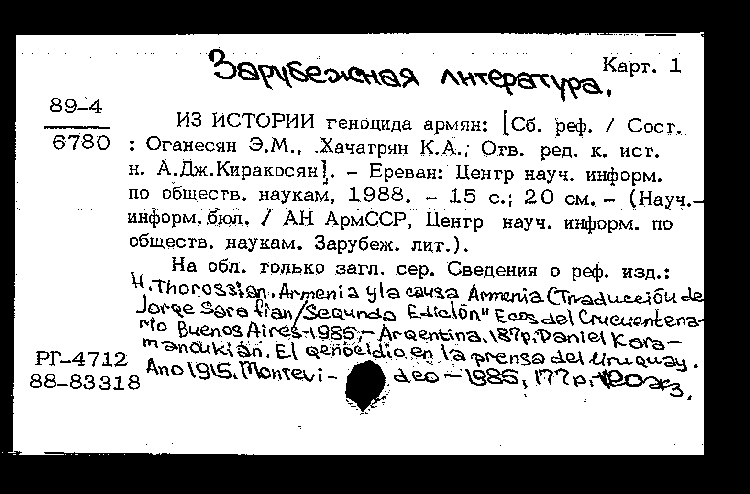 Зарубежная литература.
Карт. 1
89-4
6780
ИЗ ИСТОРИИ геноцида армян: [Сб. реф. / Сост.
: Оганесян Э.М., Хачатрян К.А.; Отв. ред. к. ист.
н. А.Дж.Киракосян]. - Ереван: Центр науч. информ.
по обществ. наукам, 1988. - 15 с.; 20 см. - (Науч.-
информ.бюл. / АН АрмССР, Центр науч. информ. по
обществ. наукам. Зарубеж. лит.).
На обл. только загл. сер. Сведения о реф. изд.:
H.Thorossian. Armenia y la causa Armenia (Traducción de
Jorge Sarafian/Segunda Edición" Ecos del Cincuentena-
rio Buenos Aires-1985,- Argentina. 187p. Daniel Kara-
manoukián. El genocidio en la prensa del Uruguay.
Ano 1915. Montevi-deo-1985, 177p.
РГ-4712
88-83318